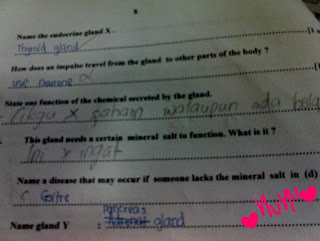 8
Name the endocrine gland X -
Thyroid gland
How does an impulse travel from the gland to other parts of the body ?
use neurone
State one function of the chemical secreted by the gland.
Cikgu x faham walaupun ada
This gland needs a certain mineral salt to function. What is it ?
Ini x ingat
Name a disease that may occur if someone lacks the mineral salt in (d)
Goitre
Pancreas
Name gland Y : gland